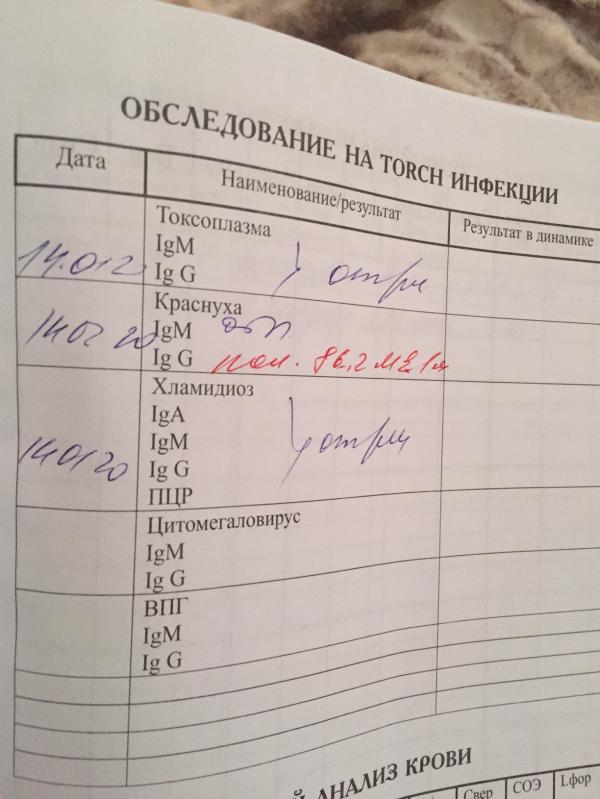 ОБСЛЕДОВАНИЕ НА TORCH ИНФЕКЦИИ
Дата Наименование/результат Результат в динамике
Токсоплазма
IgM
14.01.20 Ig G отри
Краснуха
IgM
Ig G пол. 86,2 МЕ/л
Хламидиоз
IgA
IgM отриц
14.01.20 Ig G
ПЦР
Цитомегаловирус
IgM
Ig G
ВПГ
IgM
Ig G
АНАЛИЗ КРОВИ
Свер СОЭ Lфор